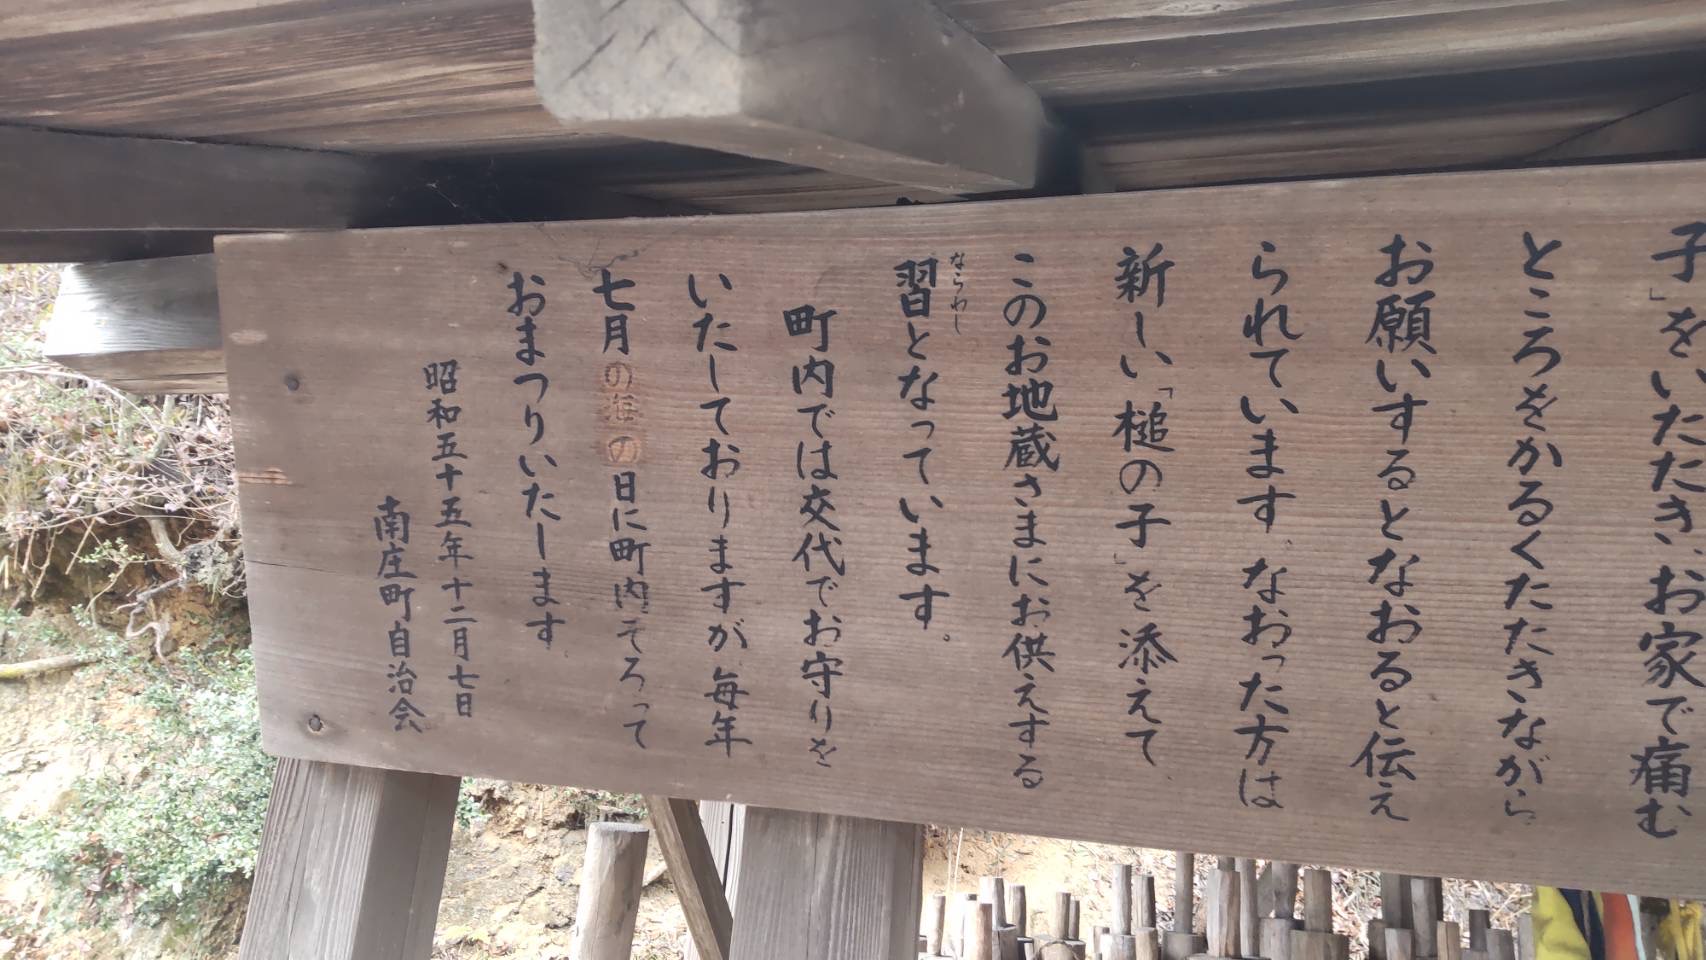 子」をいただき、お家で痛む
ところをかるくたたきながら
お願いするとなおると伝え
られています。なおった方は
新しい「槌の子」を添えて
このお地蔵さまにお供えする
習となっています。
ならわし
町内では交代でお守りを
いたしておりますが、毎年
七月の海の日に町内そろって
おまつりいたします
昭和五十五年十二月七日
南庄町自治会